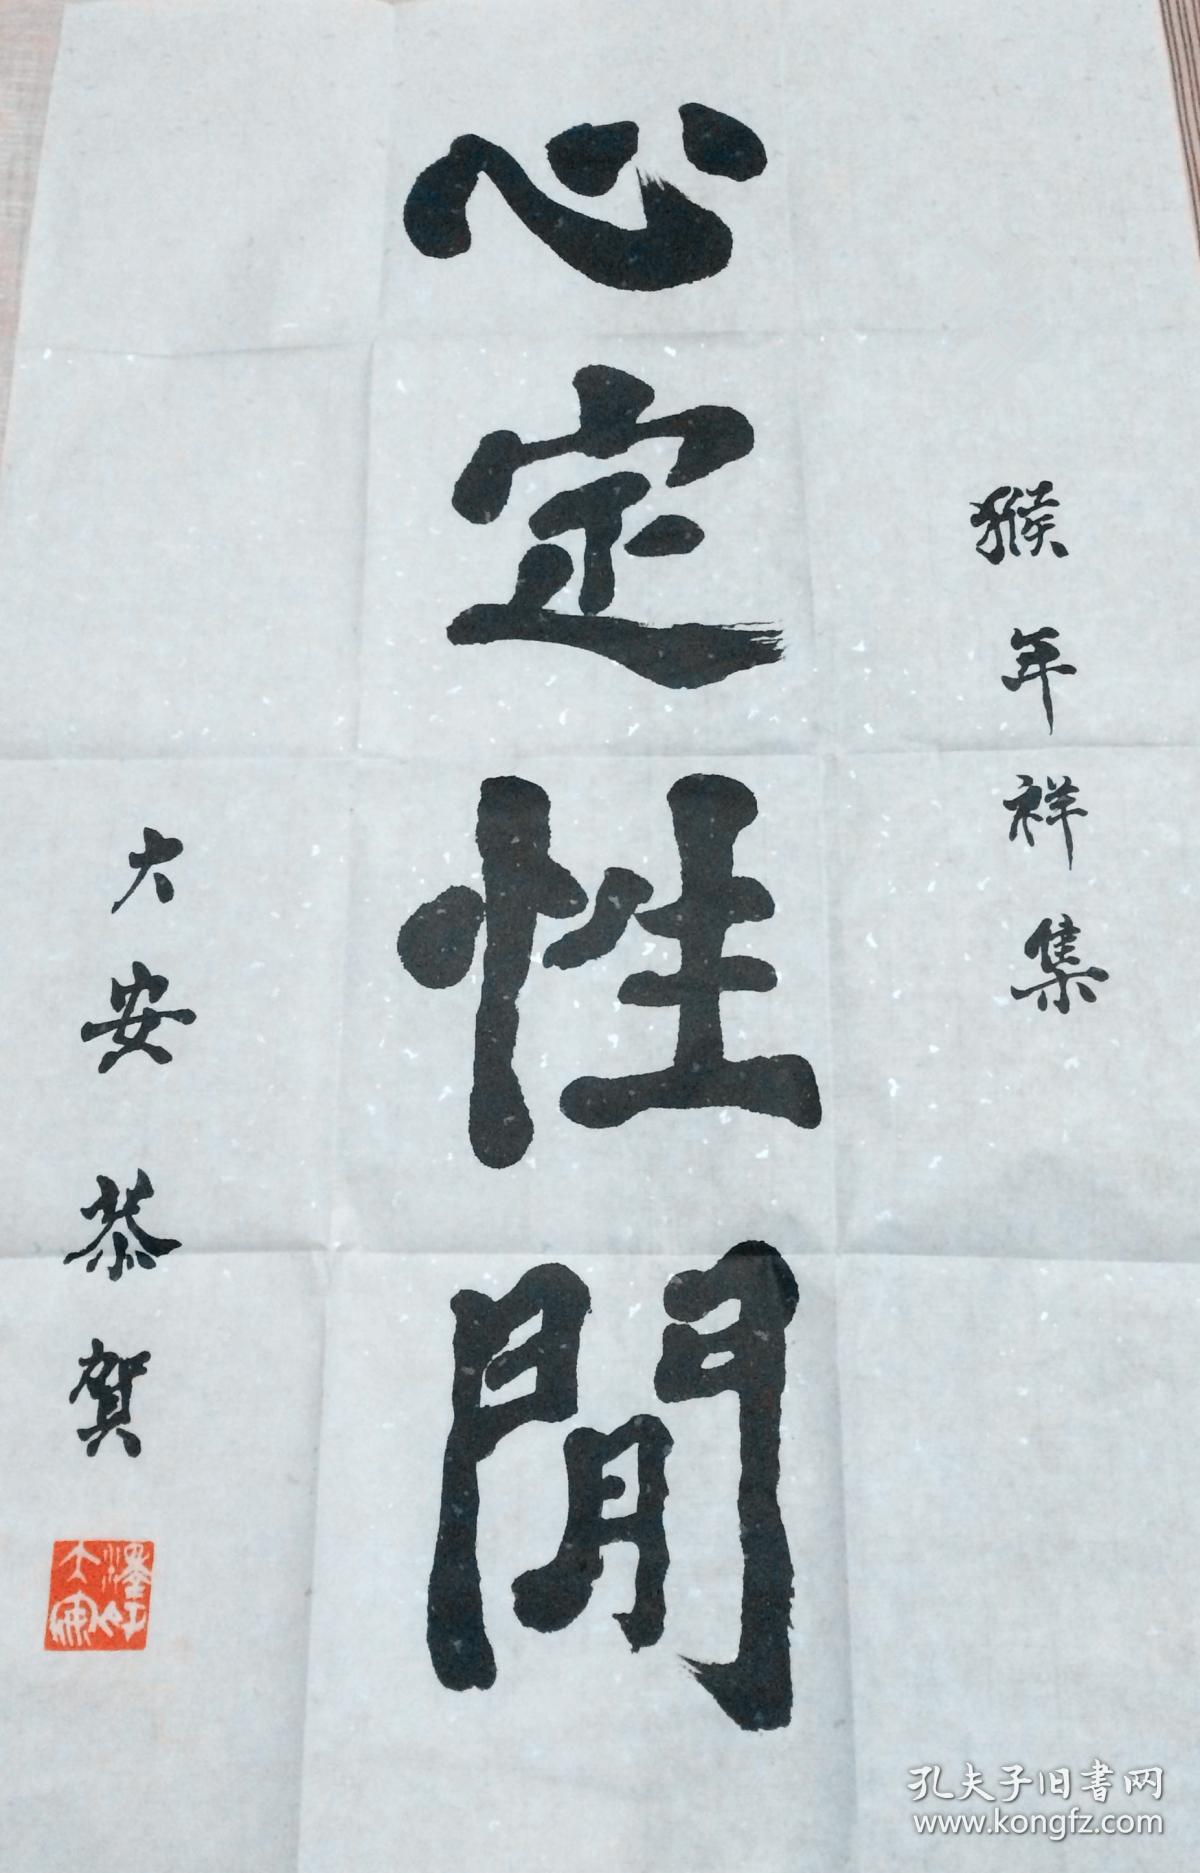 猴年祥集
心定性閒
大安恭賀
孔夫子旧書网
www.kongfz.com